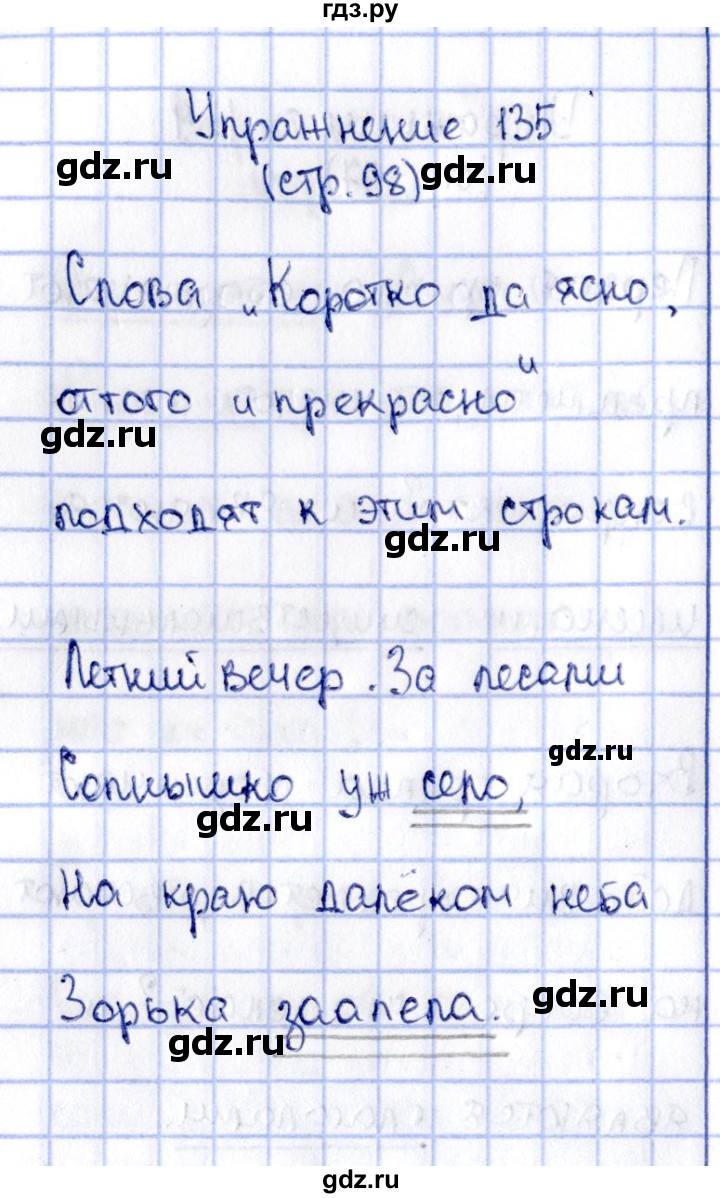 гдз.ру
Упражнение 135
gdz.ru
(стр. 98)
gdz.ru
Слова „Коротко да ясно,
оттого и прекрасно“
gdz.ru
подходят к этим строкам.
gdz.ru
Летний вечер. За лесами
gdz.ru
Солнышко уж село,
gdz.ru
На краю далёком неба
gdz.ru
Зорька заалела.
gdz.ru
gdz.ru